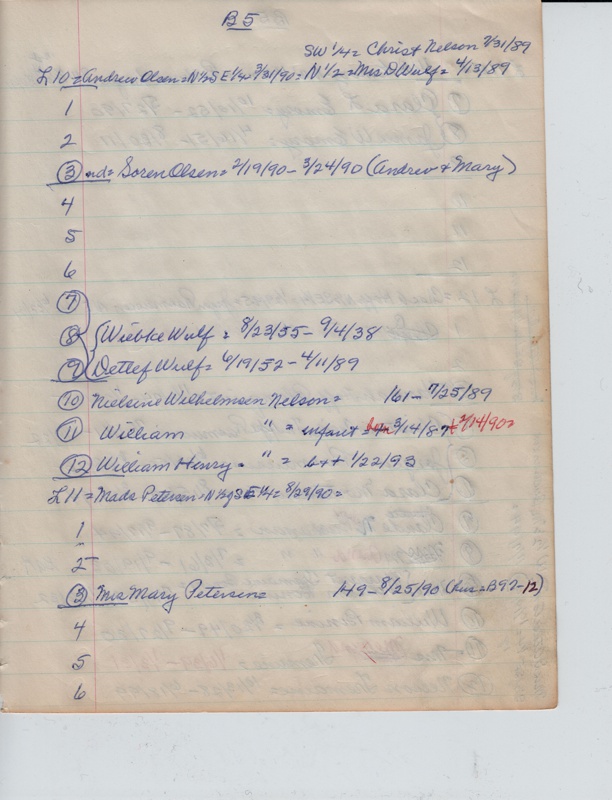 B5
SW 1/4 = Christ Nelson 7/31/89
L10 = Andrew Olsen = N 1/2 S E 1/4 = 3/31/90 = N 1/2 = Mrs D Wulf = 4/13/89
1
2
3 nd = Soren Olsen = 2/19/90 - 3/24/90 (Andrew & Mary)
4
5
6
7
8 Wiebke Wulf = 8/23/55 - 9/4/38
9 Detlef Wulf = 6/19/52 - 4/11/89
10 Nielsine Wilhelmsen Nelson = 161 - 7/25/89
11 William " = infant = 3/14/87 + 2/14/90 =
12 William Henry = " = b + + 1/22/93
L11 = Mads Petersen - N 1/2 of S E 1/4 = 8/29/90 =
1
2
3 Mrs Mary Petersen = 149 - 8/25/90 (hus = B92-12)
4
5
6